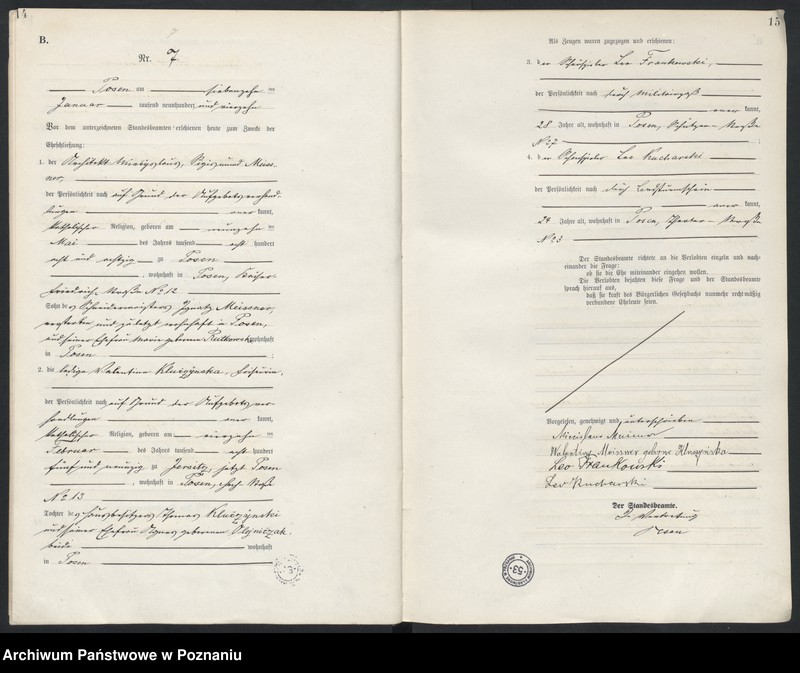 14
B.
Nr. 7
Posen am siebenzehn ten
Januar tausend neunhundert und vierzehn
Vor dem unterzeichneten Standesbeamten erschienen heute zum Zwecke der
Eheschließung:
1. der Architekt Miecislaus, Sigismund Meiss-
ner,
der Persönlichkeit nach auf Grund der Aufgebotsverhand-
lungen aner kannt,
katholischer Religion, geboren am neunzehn ten
Mai des Jahres tausend acht hundert
acht und achtzig zu Posen
, wohnhaft in Posen, Kaiser
Friedrich Straße No 12
Sohn des Schneidermeisters Ignatz Meissner,
verstorben und zuletzt wohnhaft in Posen,
und seiner Ehefrau Maria geborenen Rutkowska wohnhaft
in Posen ;
2. die ledige Valentina Kluczynska, Friseurin,
der Persönlichkeit nach auf Grund der Aufgebotsver-
handlungen aner kannt,
katholischer Religion, geboren am vierzehn ten
Februar des Jahres tausend acht hundert
fünf und neunzig zu Jersitz, jetzt Posen
, wohnhaft in Posen, Straße
No 13
Tochter des Hausbesitzers Thomas Kluczynski
und seiner Ehefrau Agnes geborenen Olejniczak,
beide wohnhaft
in Posen
15
Als Zeugen waren zugezogen und erschienen:
3. der Schauspieler Leo Frankowski,
der Persönlichkeit nach durch Militärpaß
aner kannt,
28 Jahre alt, wohnhaft in Posen, Schützen-Straße
No 27 ;
4. der Schauspieler Leo Kucharski
der Persönlichkeit nach durch Landsturmschein
aner kannt,
24 Jahre alt, wohnhaft in Posen, Theater-Straße
No 3
Der Standesbeamte richtete an die Verlobten einzeln und nach-
einander die Frage:
ob sie die Ehe miteinander eingehen wollen.
Die Verlobten bejahten diese Frage und der Standesbeamte
sprach hierauf aus,
daß sie kraft des Bürgerlichen Gesetzbuchs nunmehr rechtmäßig
verbundene Eheleute seien.
Vorgelesen, genehmigt und unterschrieben
Miecislaus Meissner
Meissner geborne Kluczyńska
Leo Frankowski
Leo Kucharski
Der Standesbeamte.
In Vertretung
53
Archiwum Państwowe w Poznaniu